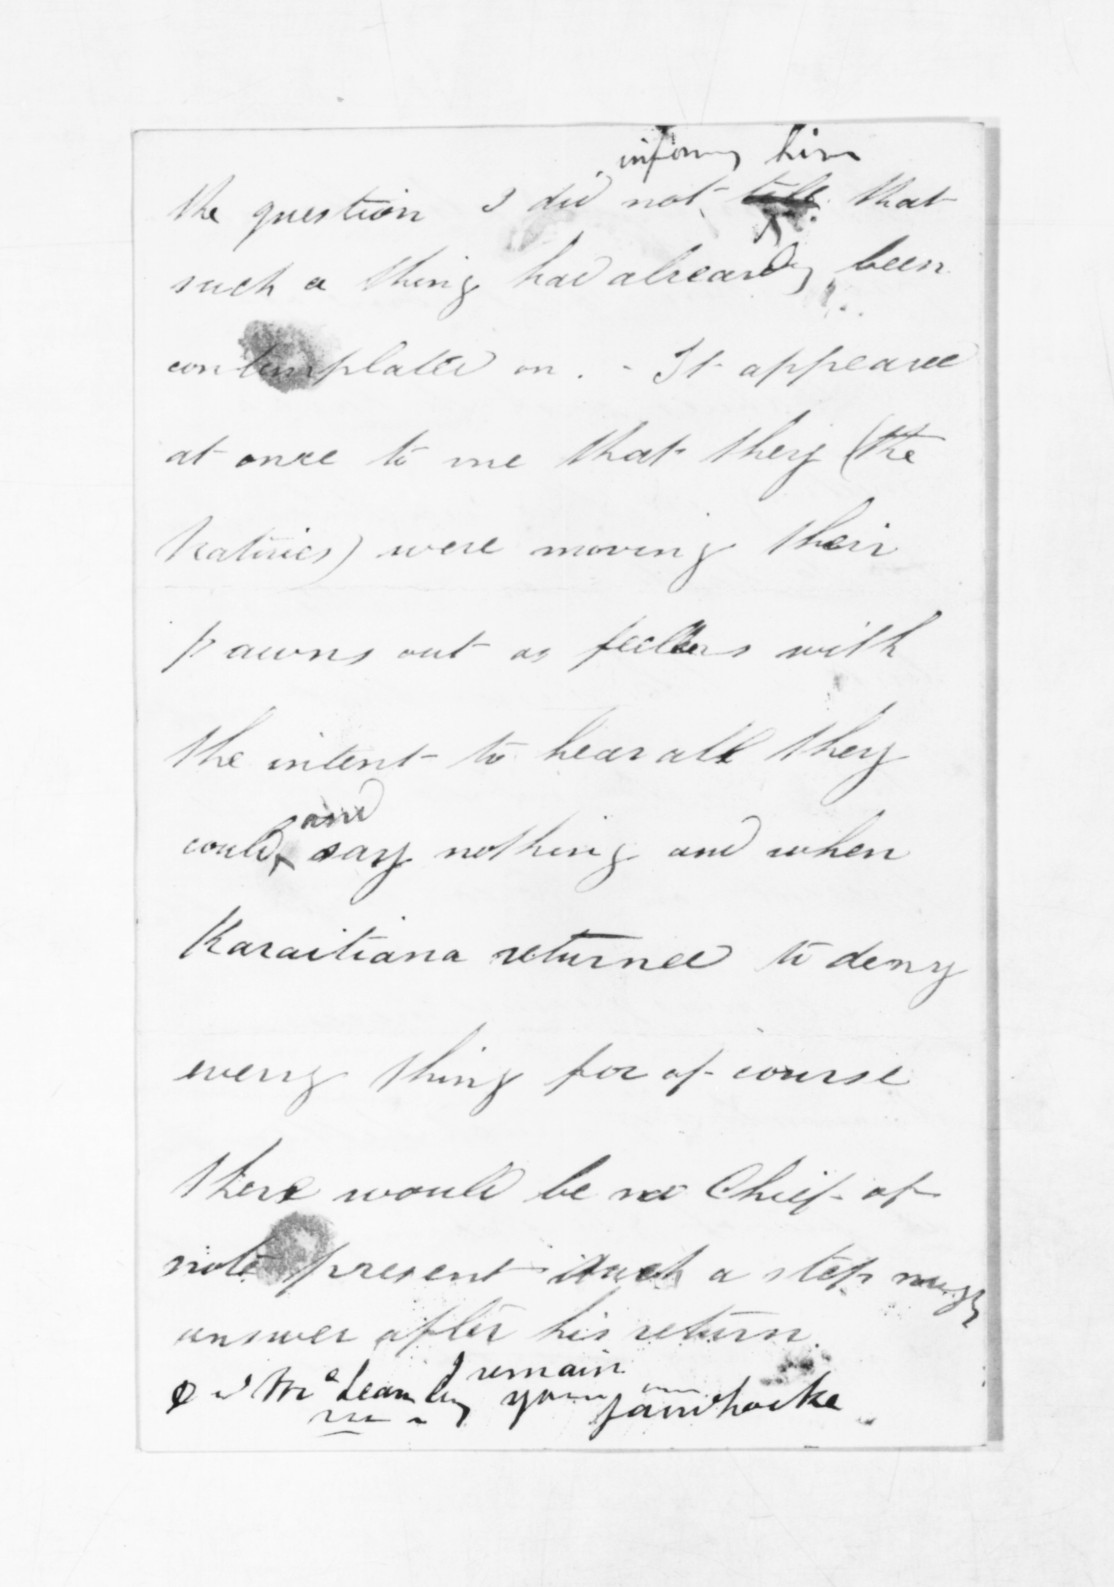 inform him
the question I did not tell that
such a thing had already been
contemplated on. - It appeared
at once to me that they (the
Natives) were moving their
pawns out as feelers with
the intent to hear all they
and
could, say nothing and when
Karaitiana returned to deny
every thing for of course
there would be no Chief of
note present such a step might
answer after his return.
I remain
McLean Esq yours